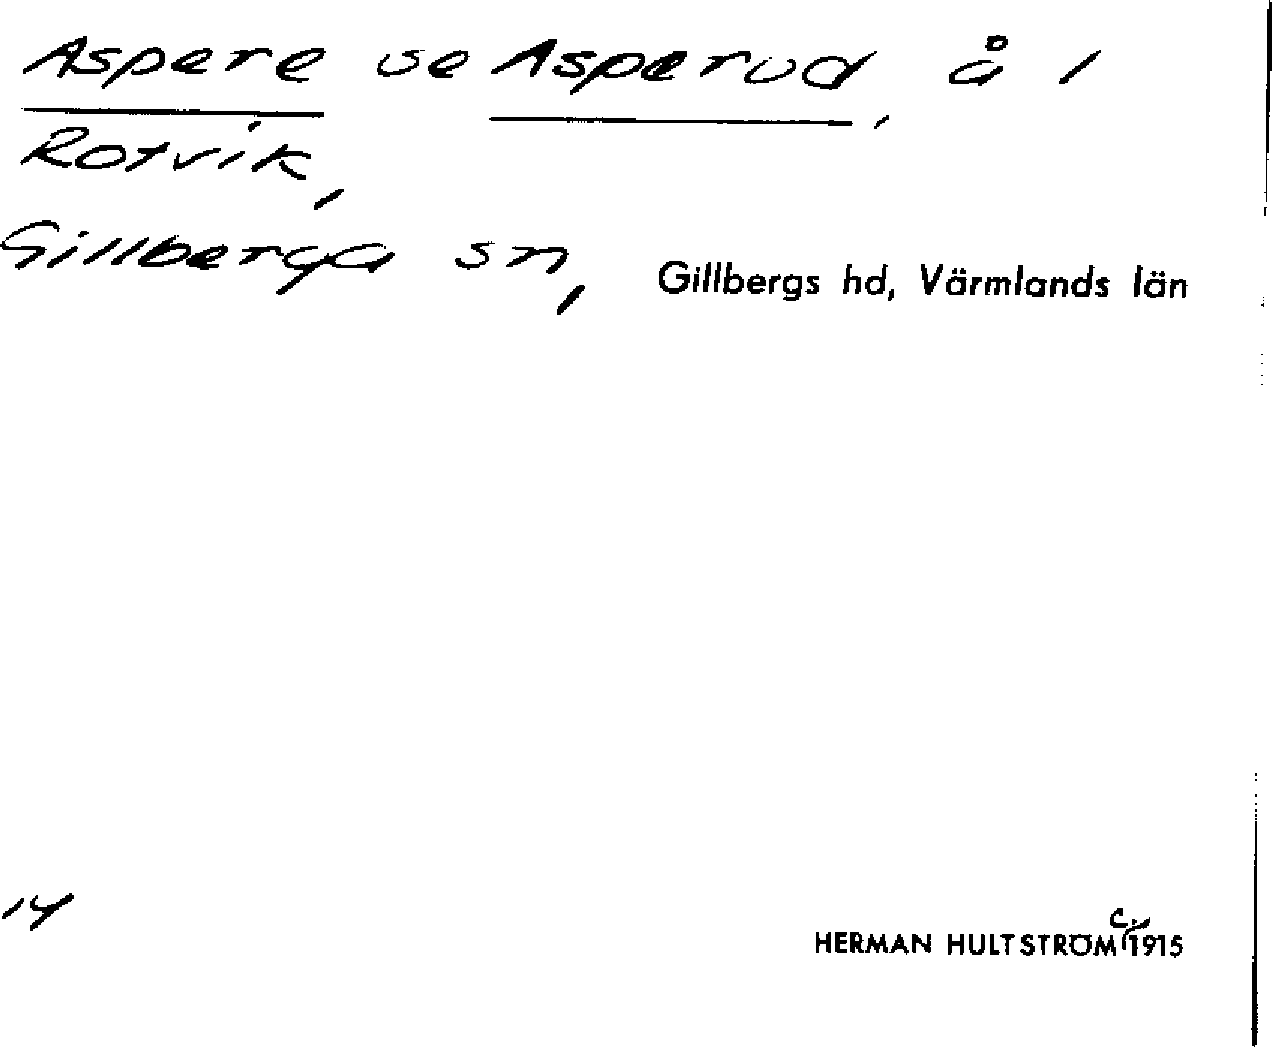 Aspere se Asperud, å 1
Rotvik,
Gillberga sn, Gillbergs hd, Värmlands län
14
HERMAN HULTSTRÖM 1915